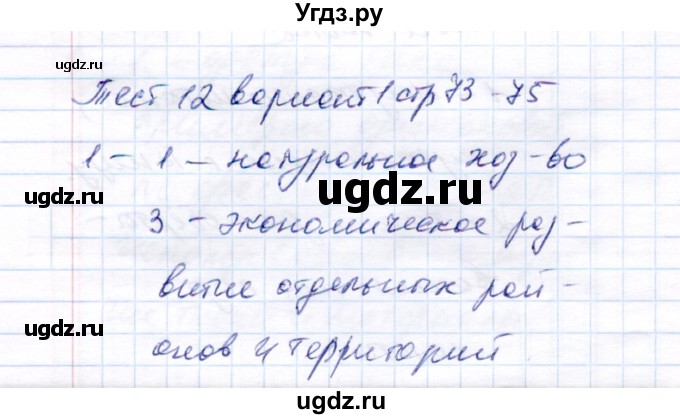 Угдз.ру
ugdz.ru
ugdz.ru
Тест 12 вариант 1 стр 73 - 75
1 - 1 - натуральное хоз-во
ugdz.ru
ugdz.ru
3 - экономическое раз-
витие отдельных рай-
ugdz.ru
ugdz.ru
онов и территорий
ugdz.ru